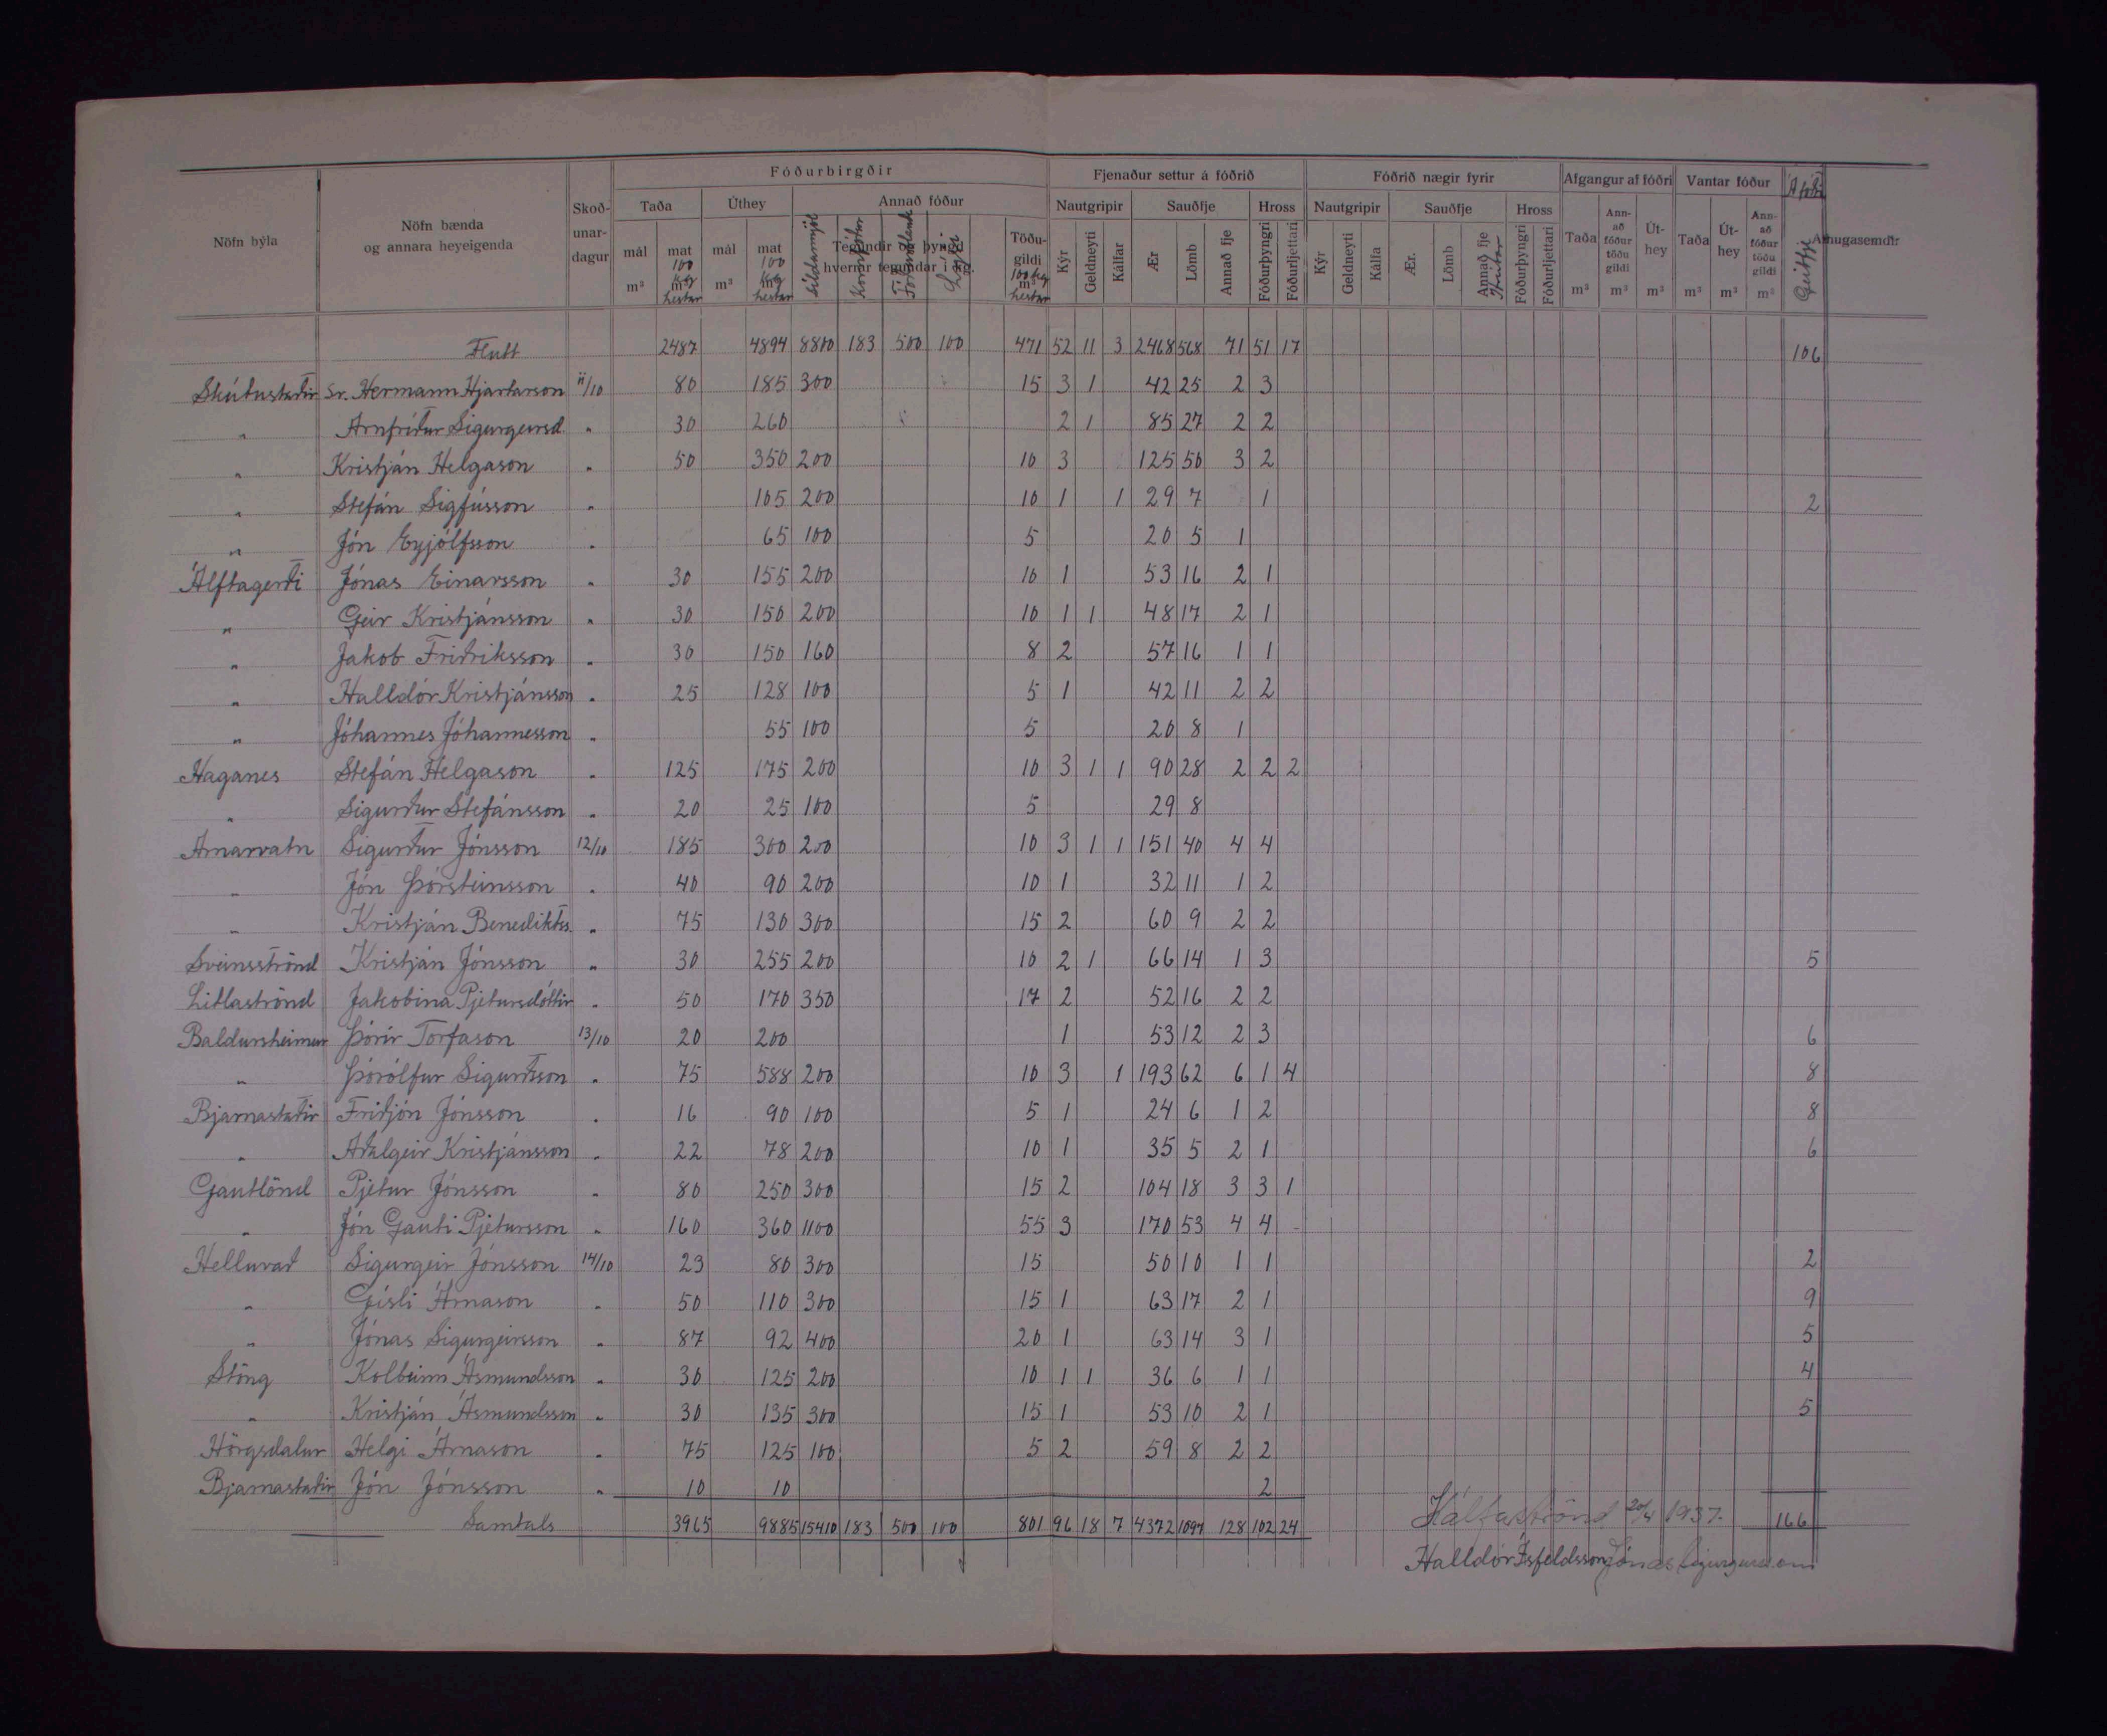 Fóðurbirgðir Fjenaður settur á fóðrið Fóðrið nægir fyrir Afgangur af fóðri Vantar fóður Á fóðri
Nöfn býla Nöfn bænda og annara heyeigenda Skoð-unar-dagur Taða Úthey Annað fóður Nautgripir Sauðfje Hross Nautgripir Sauðfje Hross Taða Ann-að fóður töðu gildi Út-hey Taða Út-hey Ann-að fóður töðu gildi Geitfje Athugasemdir
mál m³ mat 100 kg hestar mál m³ mat 100 kg hestar Síldarmjöl Tegundir og þyngd hverrar tegundar í kg. Lýsi Töðu-gildi 100 kg hestar Kýr Geldneyti Kálfar Ær Lömb Annað fje Fóðurþyngri Fóðurljettari Kýr Geldneyti Kálfa Ær. Lömb Annað fje Hrútar Fóðurþyngri Fóðurljettari m³ m³ m³ m³ m³ m³
Flutt 2487 4894 8800 183 500 100 471 52 11 3 2468 568 71 51 17 106
Skútustaðir Sr. Hermann Hjartarson 11/10 80 185 300 15 3 1 42 25 2 3
" Arnfríður Sigurgeirsd. " 30 260 2 1 85 27 2 2
" Kristján Helgason " 50 350 200 10 3 125 50 3 2
" Stefán Sigfússon " 105 200 10 1 1 29 7 1 2
" Jón Eyjólfsson " 65 100 5 20 5 1
Álftagerði Jónas Einarsson " 30 155 200 10 1 53 16 2 1
" Geir Kristjánsson " 30 150 200 10 1 1 48 17 2 1
" Jakob Friðriksson " 30 150 160 8 2 57 16 1 1
" Halldór Kristjánsson " 25 128 100 5 1 42 11 2 2
" Jóhannes Jóhannesson " 55 100 5 20 8 1
Haganes Stefán Helgason " 125 175 200 10 3 1 1 90 28 2 2 2
" Sigurður Stefánsson " 20 25 100 5 29 8
Arnarvatn Sigurður Jónsson 12/10 185 300 200 10 3 1 1 151 40 4 4
" Jón Þórsteinsson " 40 90 200 10 1 32 11 1 2
" Kristján Benediktss. " 75 130 300 15 2 60 9 2 2
Sveinsströnd Kristján Jónsson " 30 255 200 10 2 1 66 14 1 3 5
Litlaströnd Jakobína Pjetursdóttir " 50 170 350 17 2 52 16 2 2
Baldursheimur Þórir Torfason 13/10 20 200 1 53 12 2 3 6
" Þórólfur Sigurðsson " 75 588 200 10 3 1 193 62 6 1 4 8
Bjarnastaðir Friðjón Jónsson " 16 90 100 5 1 24 6 1 2 8
" Aðalgeir Kristjánsson " 22 78 200 10 1 35 5 2 1 6
Gautlönd Pjetur Jónsson " 80 250 300 15 2 104 18 3 3 1
" Jón Gauti Pjetursson " 160 360 1100 55 3 170 53 4 4
Helluvað Sigurgeir Jónsson 14/10 23 80 300 15 50 10 1 1 2
" Gísli Árnason " 50 110 300 15 1 63 17 2 1 9
" Jónas Sigurgeirsson " 87 92 400 20 1 63 14 3 1 5
Stöng Kolbeinn Ásmundsson " 30 125 200 10 1 1 36 6 1 1 4
" Kristján Ásmundsson " 30 135 300 15 1 53 10 2 1 5
Hörgsdalur Helgi Árnason " 75 125 100 5 2 59 8 2 2
Bjarnastaðir Jón Jónsson " 10 10 2
Samtals 3965 9885 15410 183 500 100 801 96 18 7 4372 1097 128 102 24 166
Kálfaströnd 20/4 1937.
Halldór Ísfeldsson Jónas Sigurgeirsson